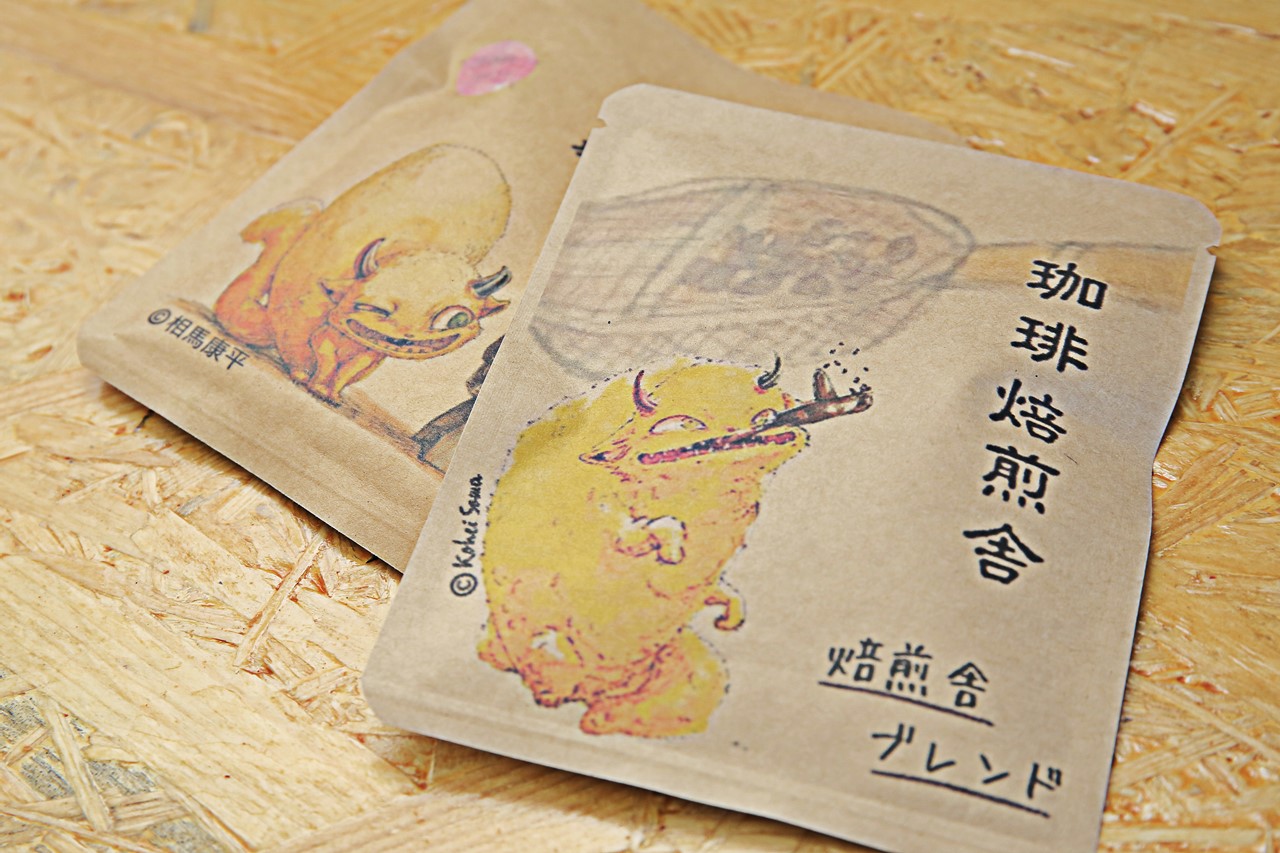 珈琲焙煎舎
焙煎舎
ブレンド
©Kohei Soma
©相馬康平